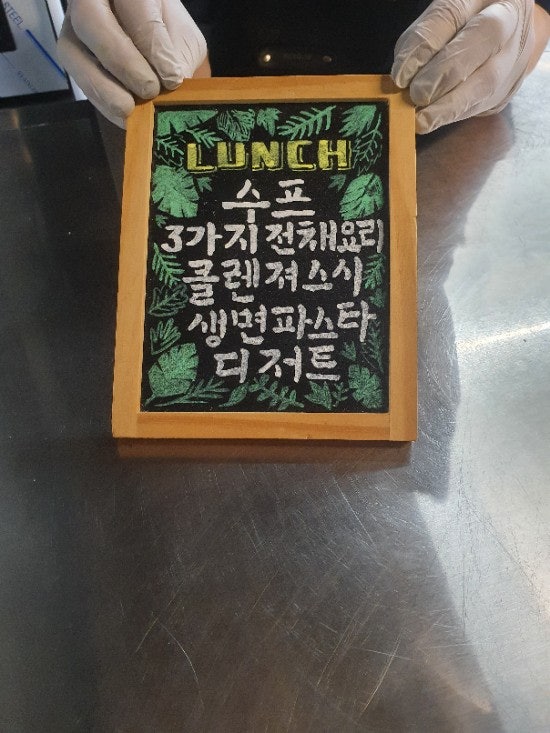 LUNCH
수프
3가지 전채요리
클렌져스시
생면파스타
디저트